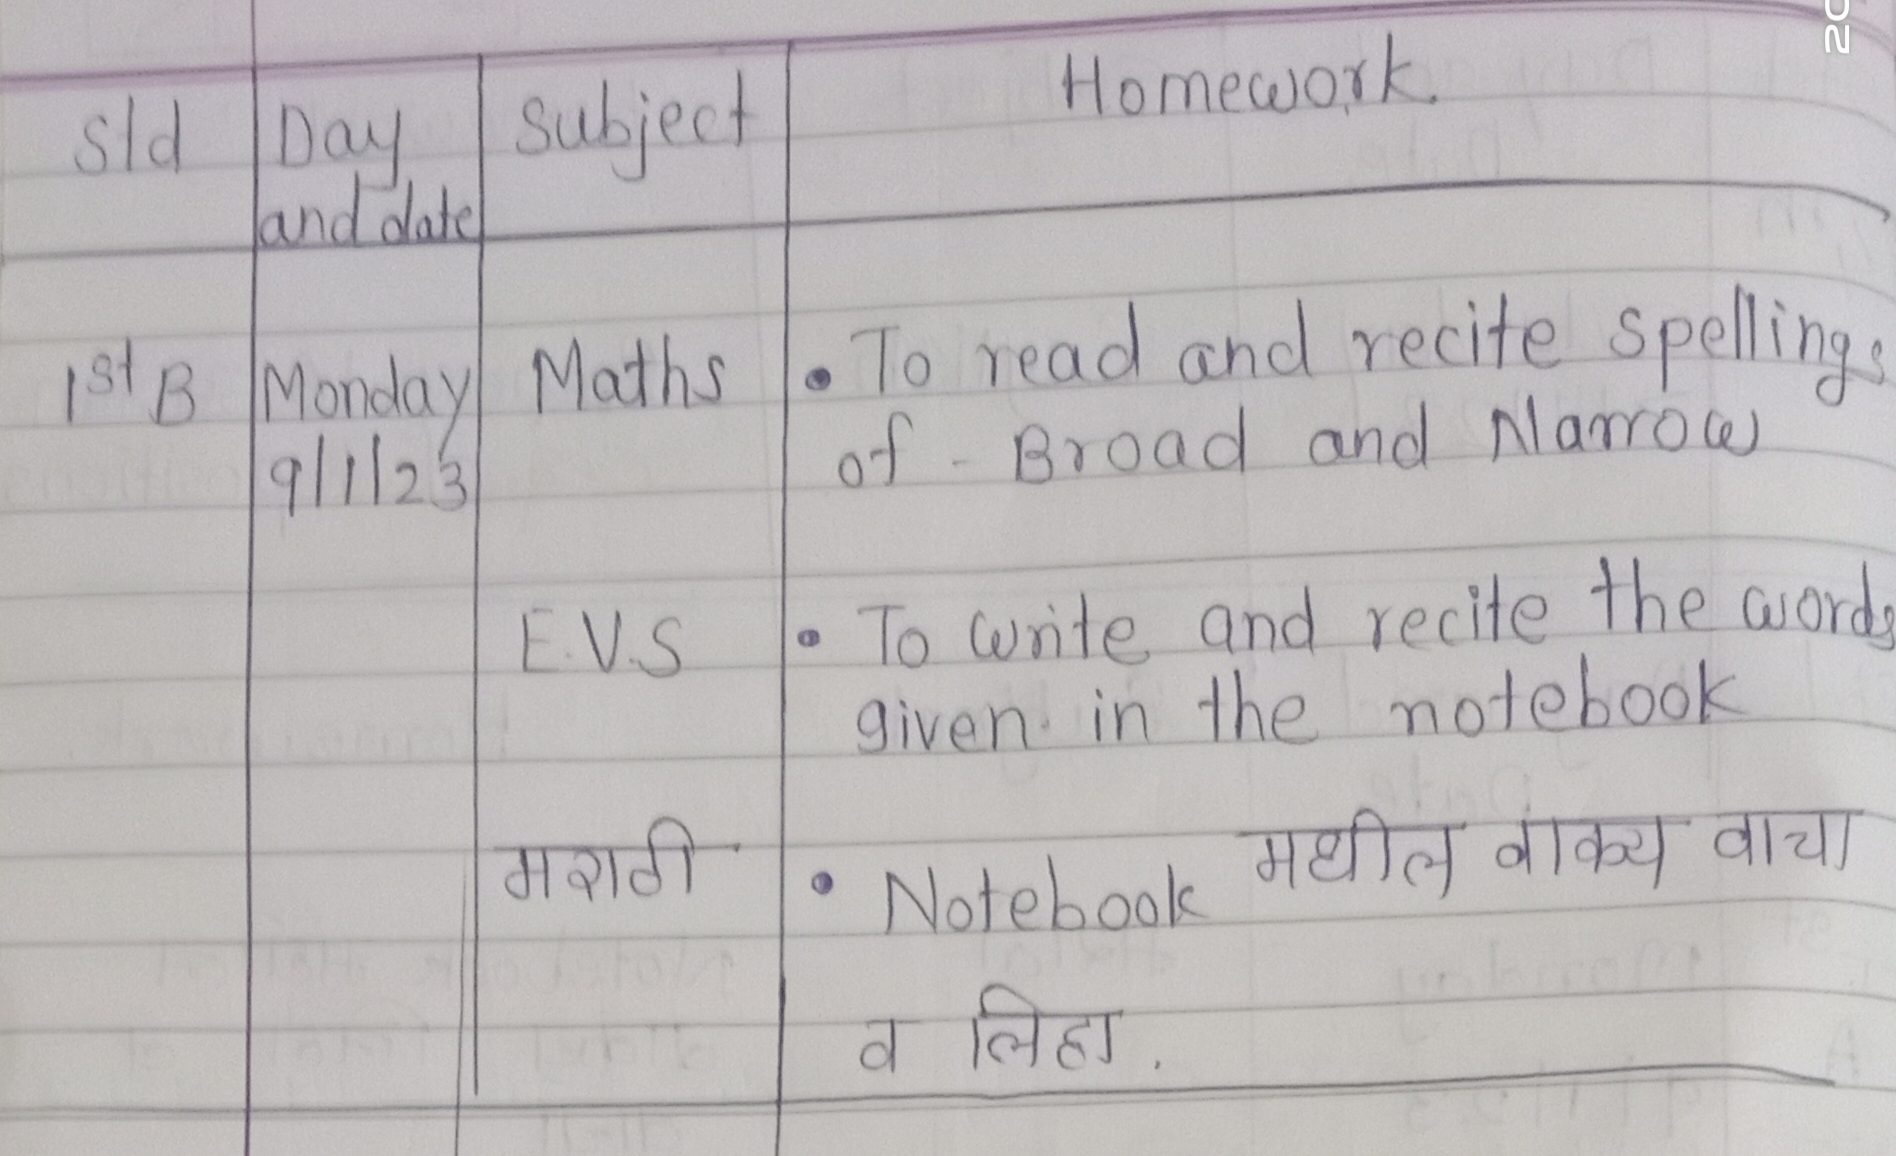 Std Day Subject Homework.
and date
1st B Monday Maths • To read and recite spellings
9/1/23 of - Broad and Narrow
E.V.S • To write and recite the words
given in the notebook
मराठी • Notebook मधील वाक्य वाचा
व लिहा.